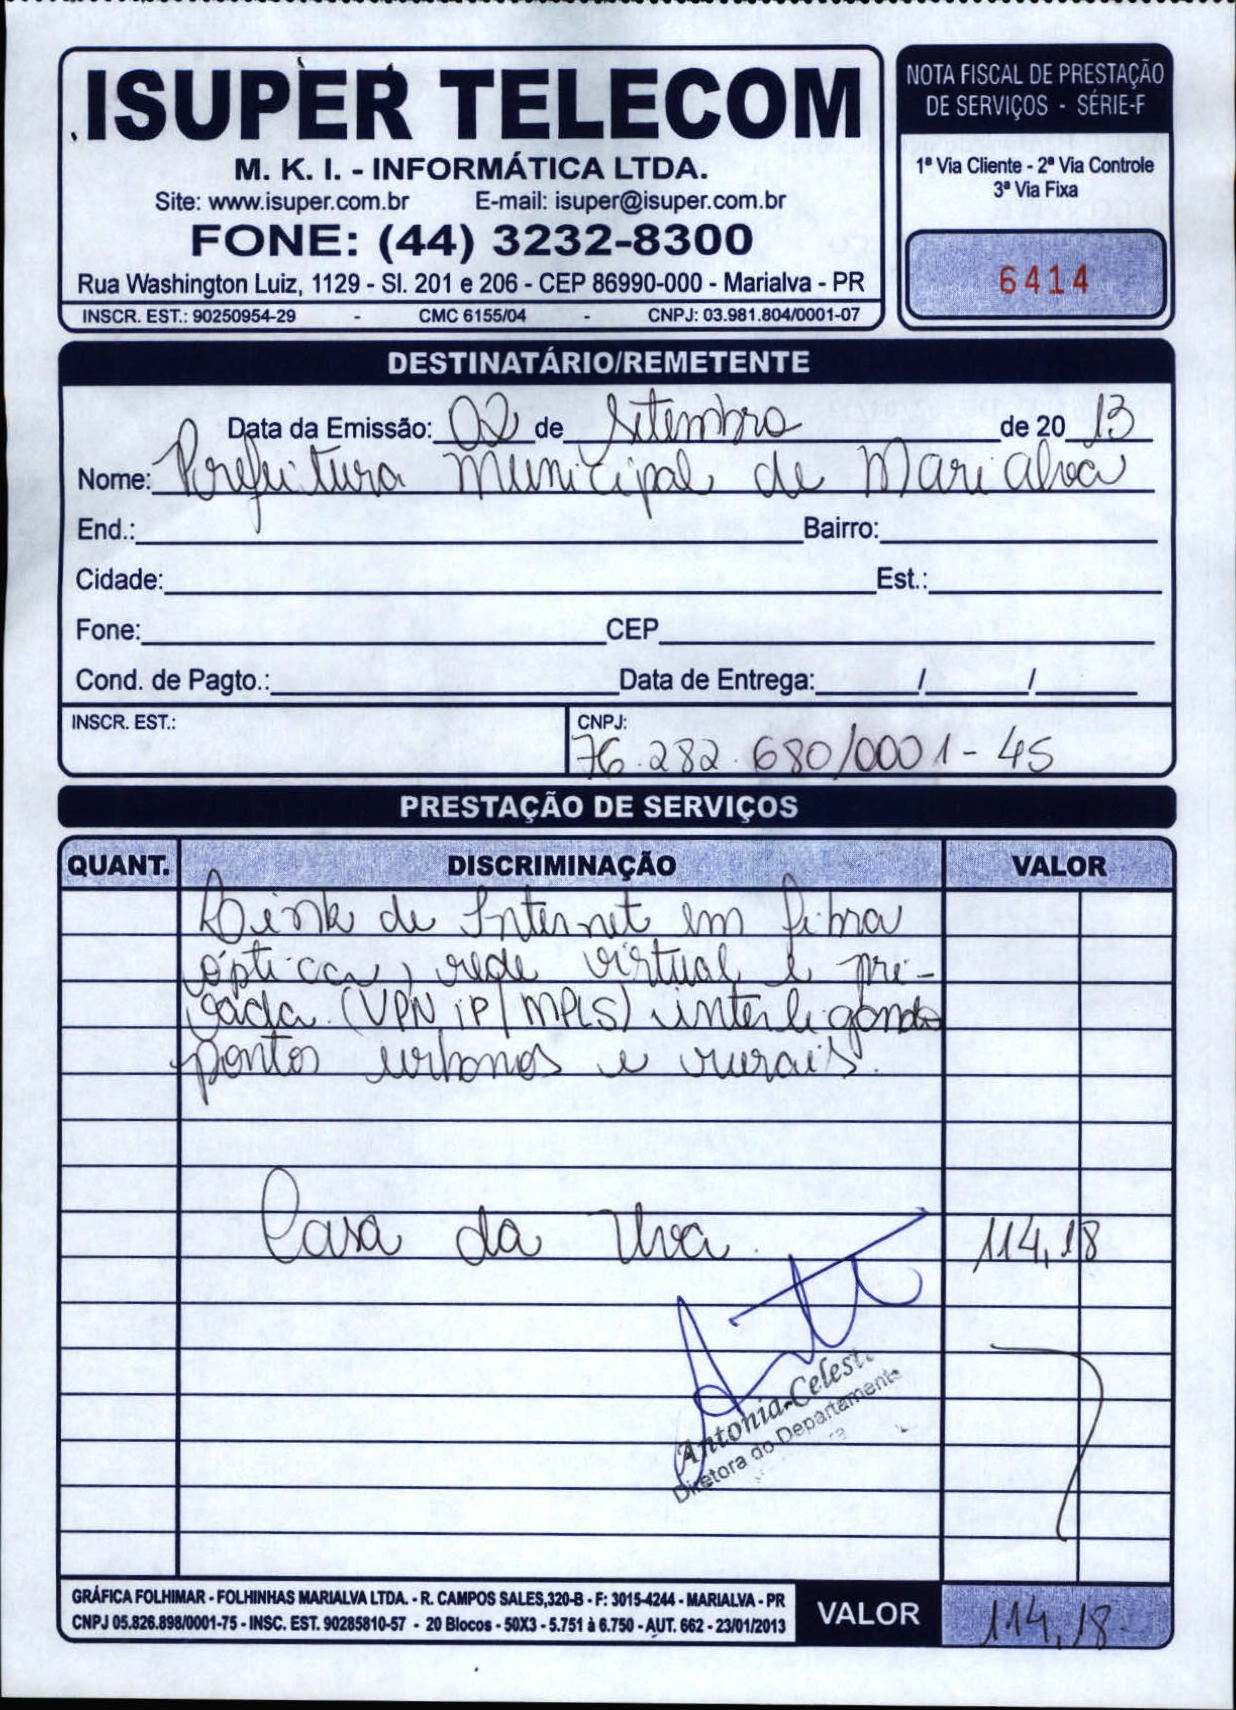 ISUPER TELECOM
M. K. I. - INFORMÁTICA LTDA.
Site: www.isuper.com.br E-mail: isuper@isuper.com.br
FONE: (44) 3232-8300
Rua Washington Luiz, 1129 - Sl. 201 e 206 - CEP 86990-000 - Marialva - PR
INSCR. EST.: 90250954-29 - CMC 6155/04 - CNPJ: 03.981.804/0001-07
NOTA FISCAL DE PRESTAÇÃO
DE SERVIÇOS - SÉRIE-F
1ª Via Cliente - 2ª Via Controle
3ª Via Fixa
6414
DESTINATÁRIO/REMETENTE
Data da Emissão: 02 de Setembro de 20 13
Nome: Prefeitura Municipal de Marialva
End.: Bairro:
Cidade: Est.:
Fone: CEP
Cond. de Pagto.: Data de Entrega: / /
INSCR. EST.: CNPJ:
76.282.680/0001-45
PRESTAÇÃO DE SERVIÇOS
QUANT. DISCRIMINAÇÃO VALOR
Link de Internet em fibra
óptica, rede virtual e pri-
vada (VPN iP/MPLS) interligando
pontos urbanos e rurais.
Casa da Uva. 114,18
Antonia Celest
Diretora do Departamento
GRÁFICA FOLHIMAR - FOLHINHAS MARIALVA LTDA. - R. CAMPOS SALES,320-B - F: 3015-4244 - MARIALVA - PR
CNPJ 05.826.898/0001-75 - INSC. EST. 90285810-57 - 20 Blocos - 50X3 - 5.751 à 6.750 - AUT. 662 - 23/01/2013
VALOR 114,18.